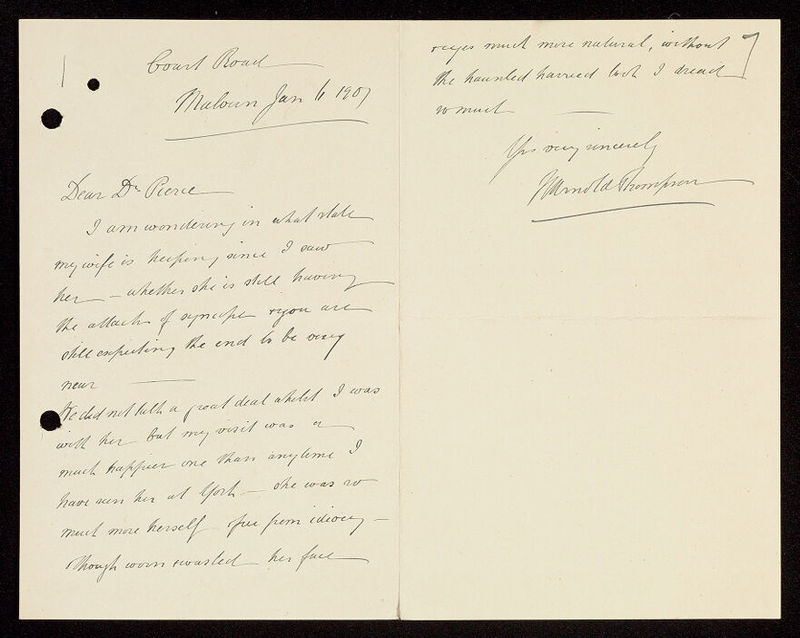 Court Road
Malvern Jan 6 1907
Dear Dr Pierce
I am wondering in what state
my wife is keeping since I saw
her – whether she is still having
the attacks of syncope & you are
still expecting the end to be very
near
We did not talk a great deal whilst I was
with her but my visit was a
much happier one than anytime I
have seen her at York – she was so
much more herself & free from idiocy –
though worn & wasted her face
& eyes much more natural, without
the haunted harried look I dread
so much
Yrs very sincerely
Arnold Thompson